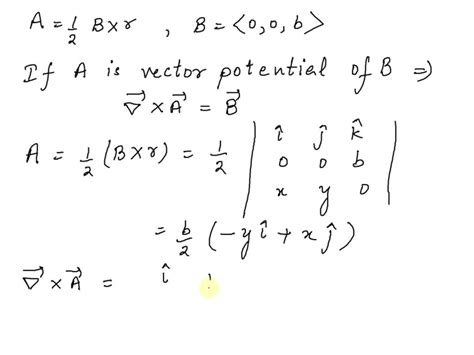 A = 1/2 B×r , B = <0,0,b>
If A is vector potential of B ⇒
∇⃗ × A⃗ = B⃗
A = 1/2 (B×r) = 1/2 | î ĵ k̂ |
| 0 0 b |
| x y 0 |
= b/2 (-y î + x ĵ)
∇⃗ × A⃗ = î